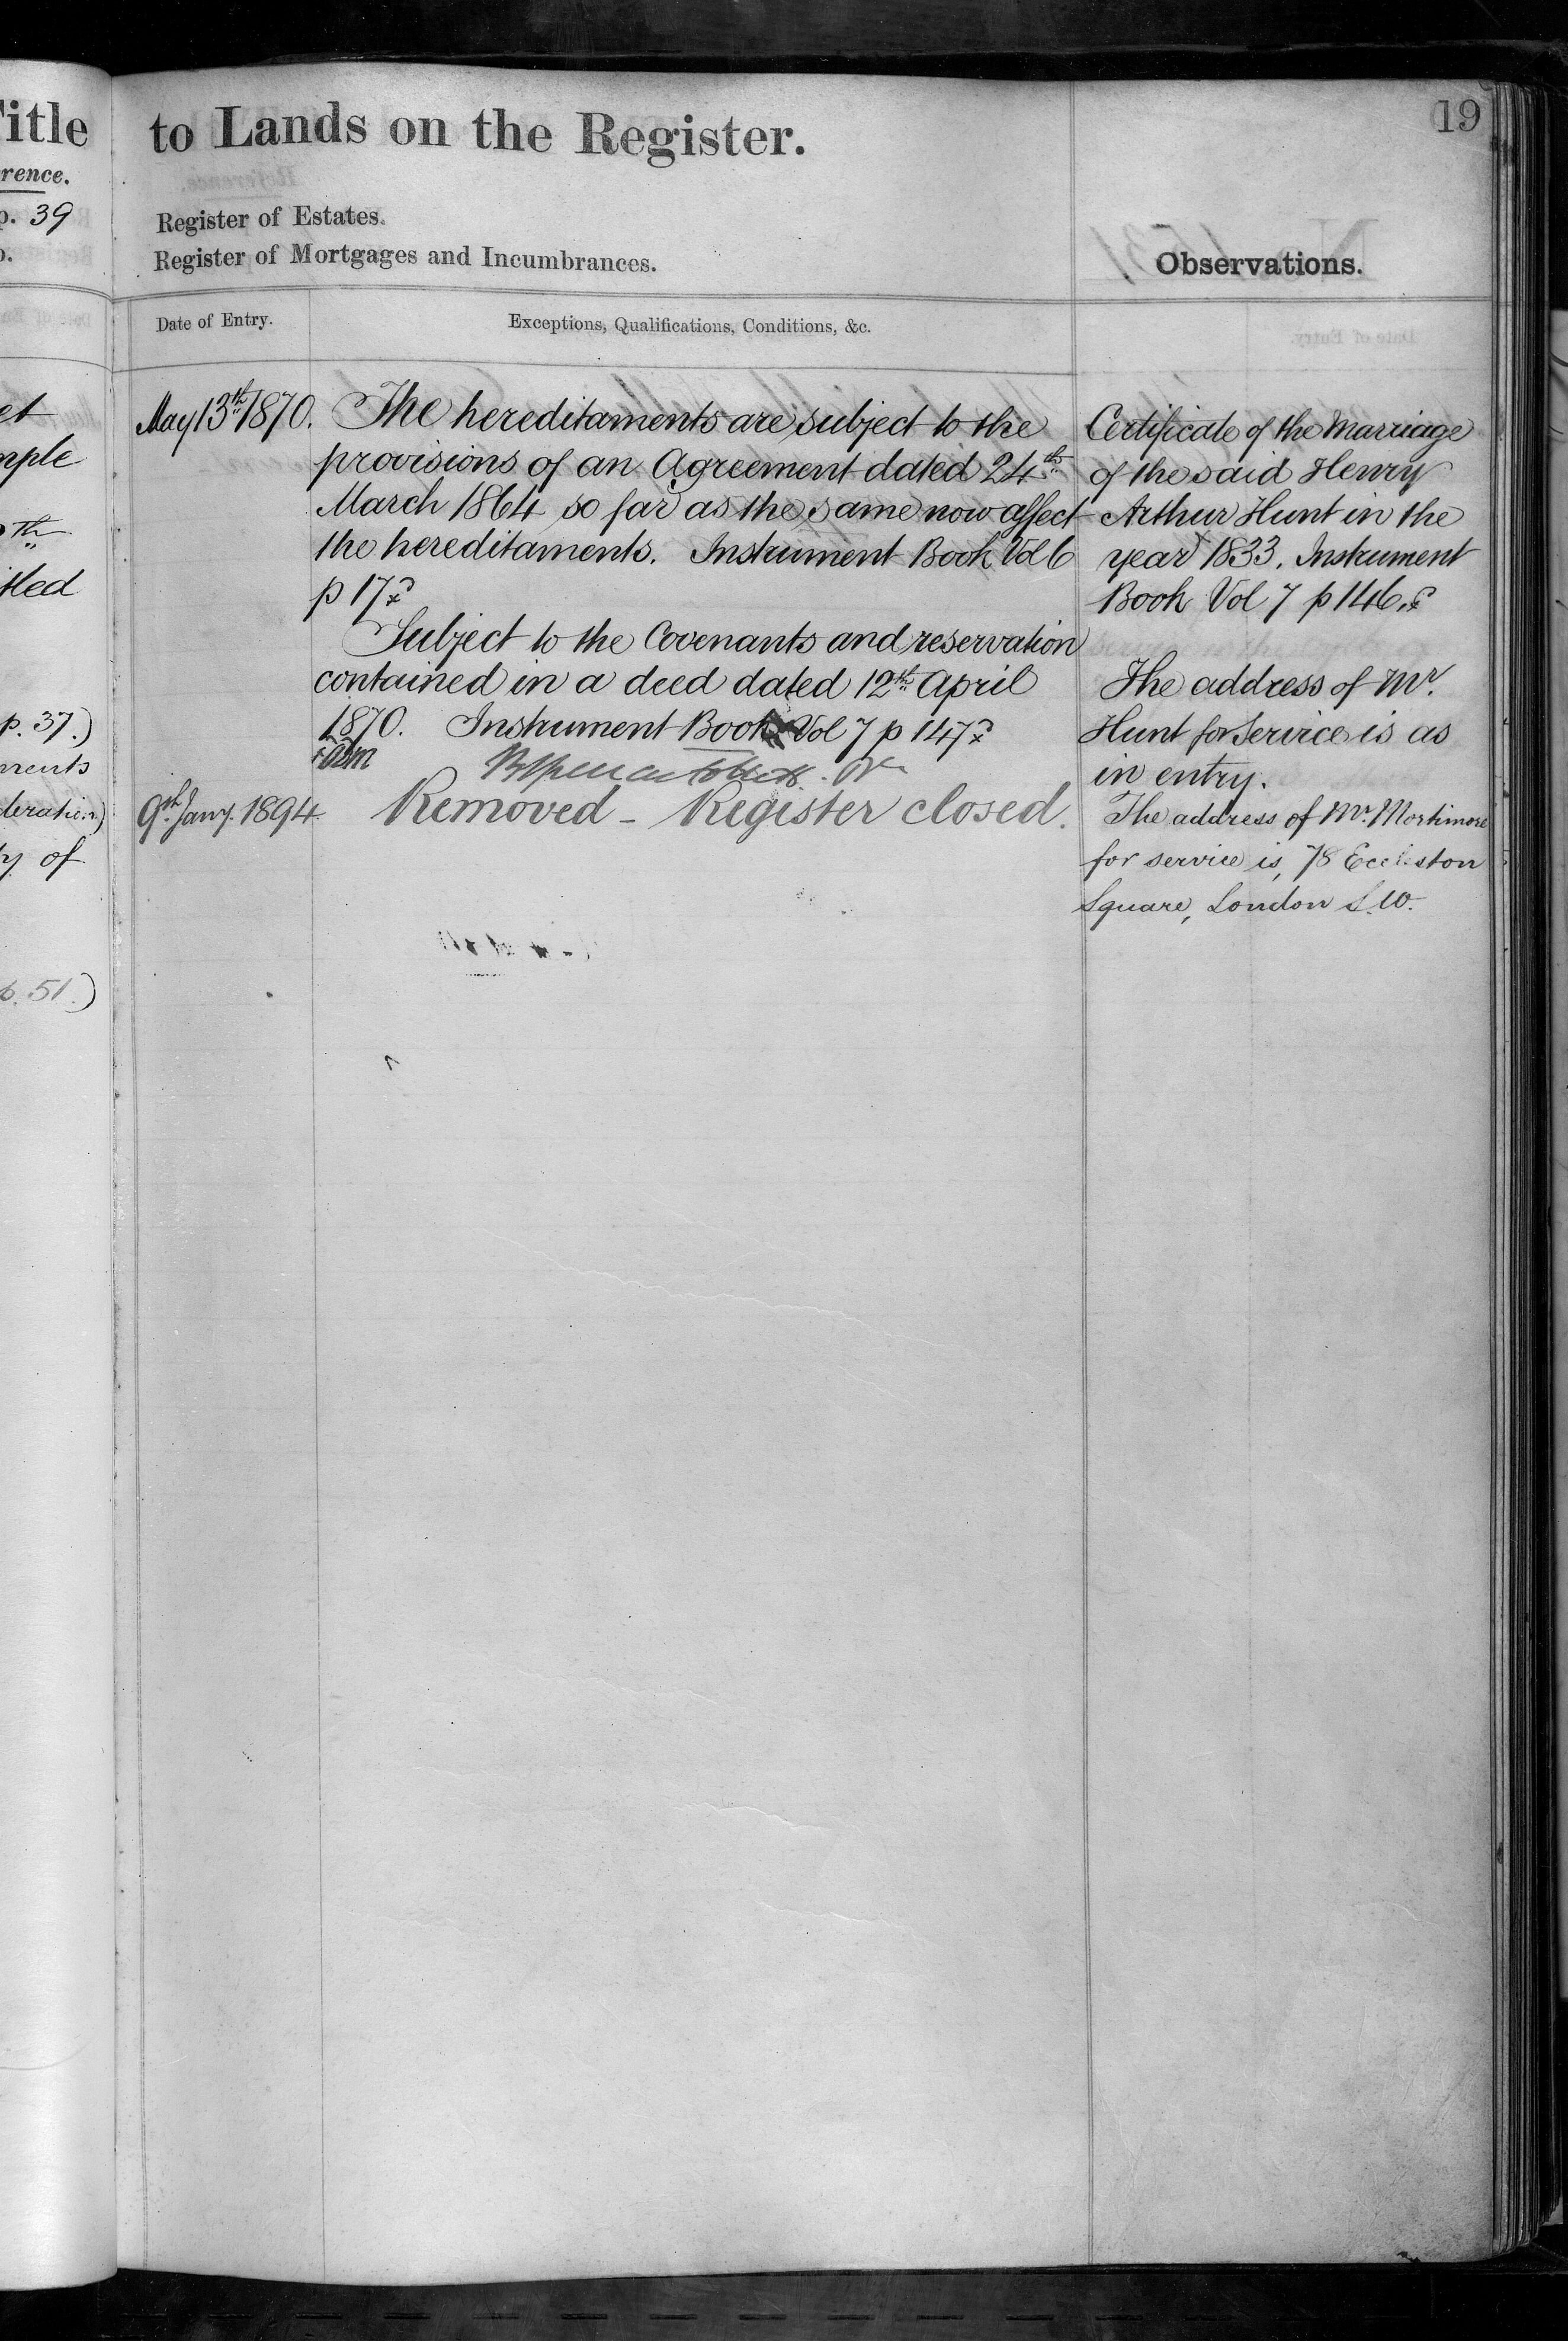 19
to Lands on the Register.
Register of Estates.
Register of Mortgages and Incumbrances.
Observations.
Date of Entry.
Exceptions, Qualifications, Conditions, &c.
May 13th 1870.
The hereditaments are subject to the
provisions of an Agreement dated 24th
March 1864 so far as the same now affect
the hereditaments. Instrument Book Vol 6
p 17
Subject to the Covenants and reservation
contained in a deed dated 12th April
1870. Instrument Book Vol 7 p 147
9th Jany. 1894
Removed - Register closed.
Certificate of the Marriage
of the said Henry
Arthur Hunt in the
year 1833. Instrument
Book Vol 7 p 146.
The address of Mr.
Hunt for Service is as
in entry.
The address of Mr. Mortimore
for service is, 78 Eccleston
Square, London S.W.
itle
rence.
p. 39
p.
et
mple
th
tled
p. 37.)
ments
deration)
y of
p. 51.)